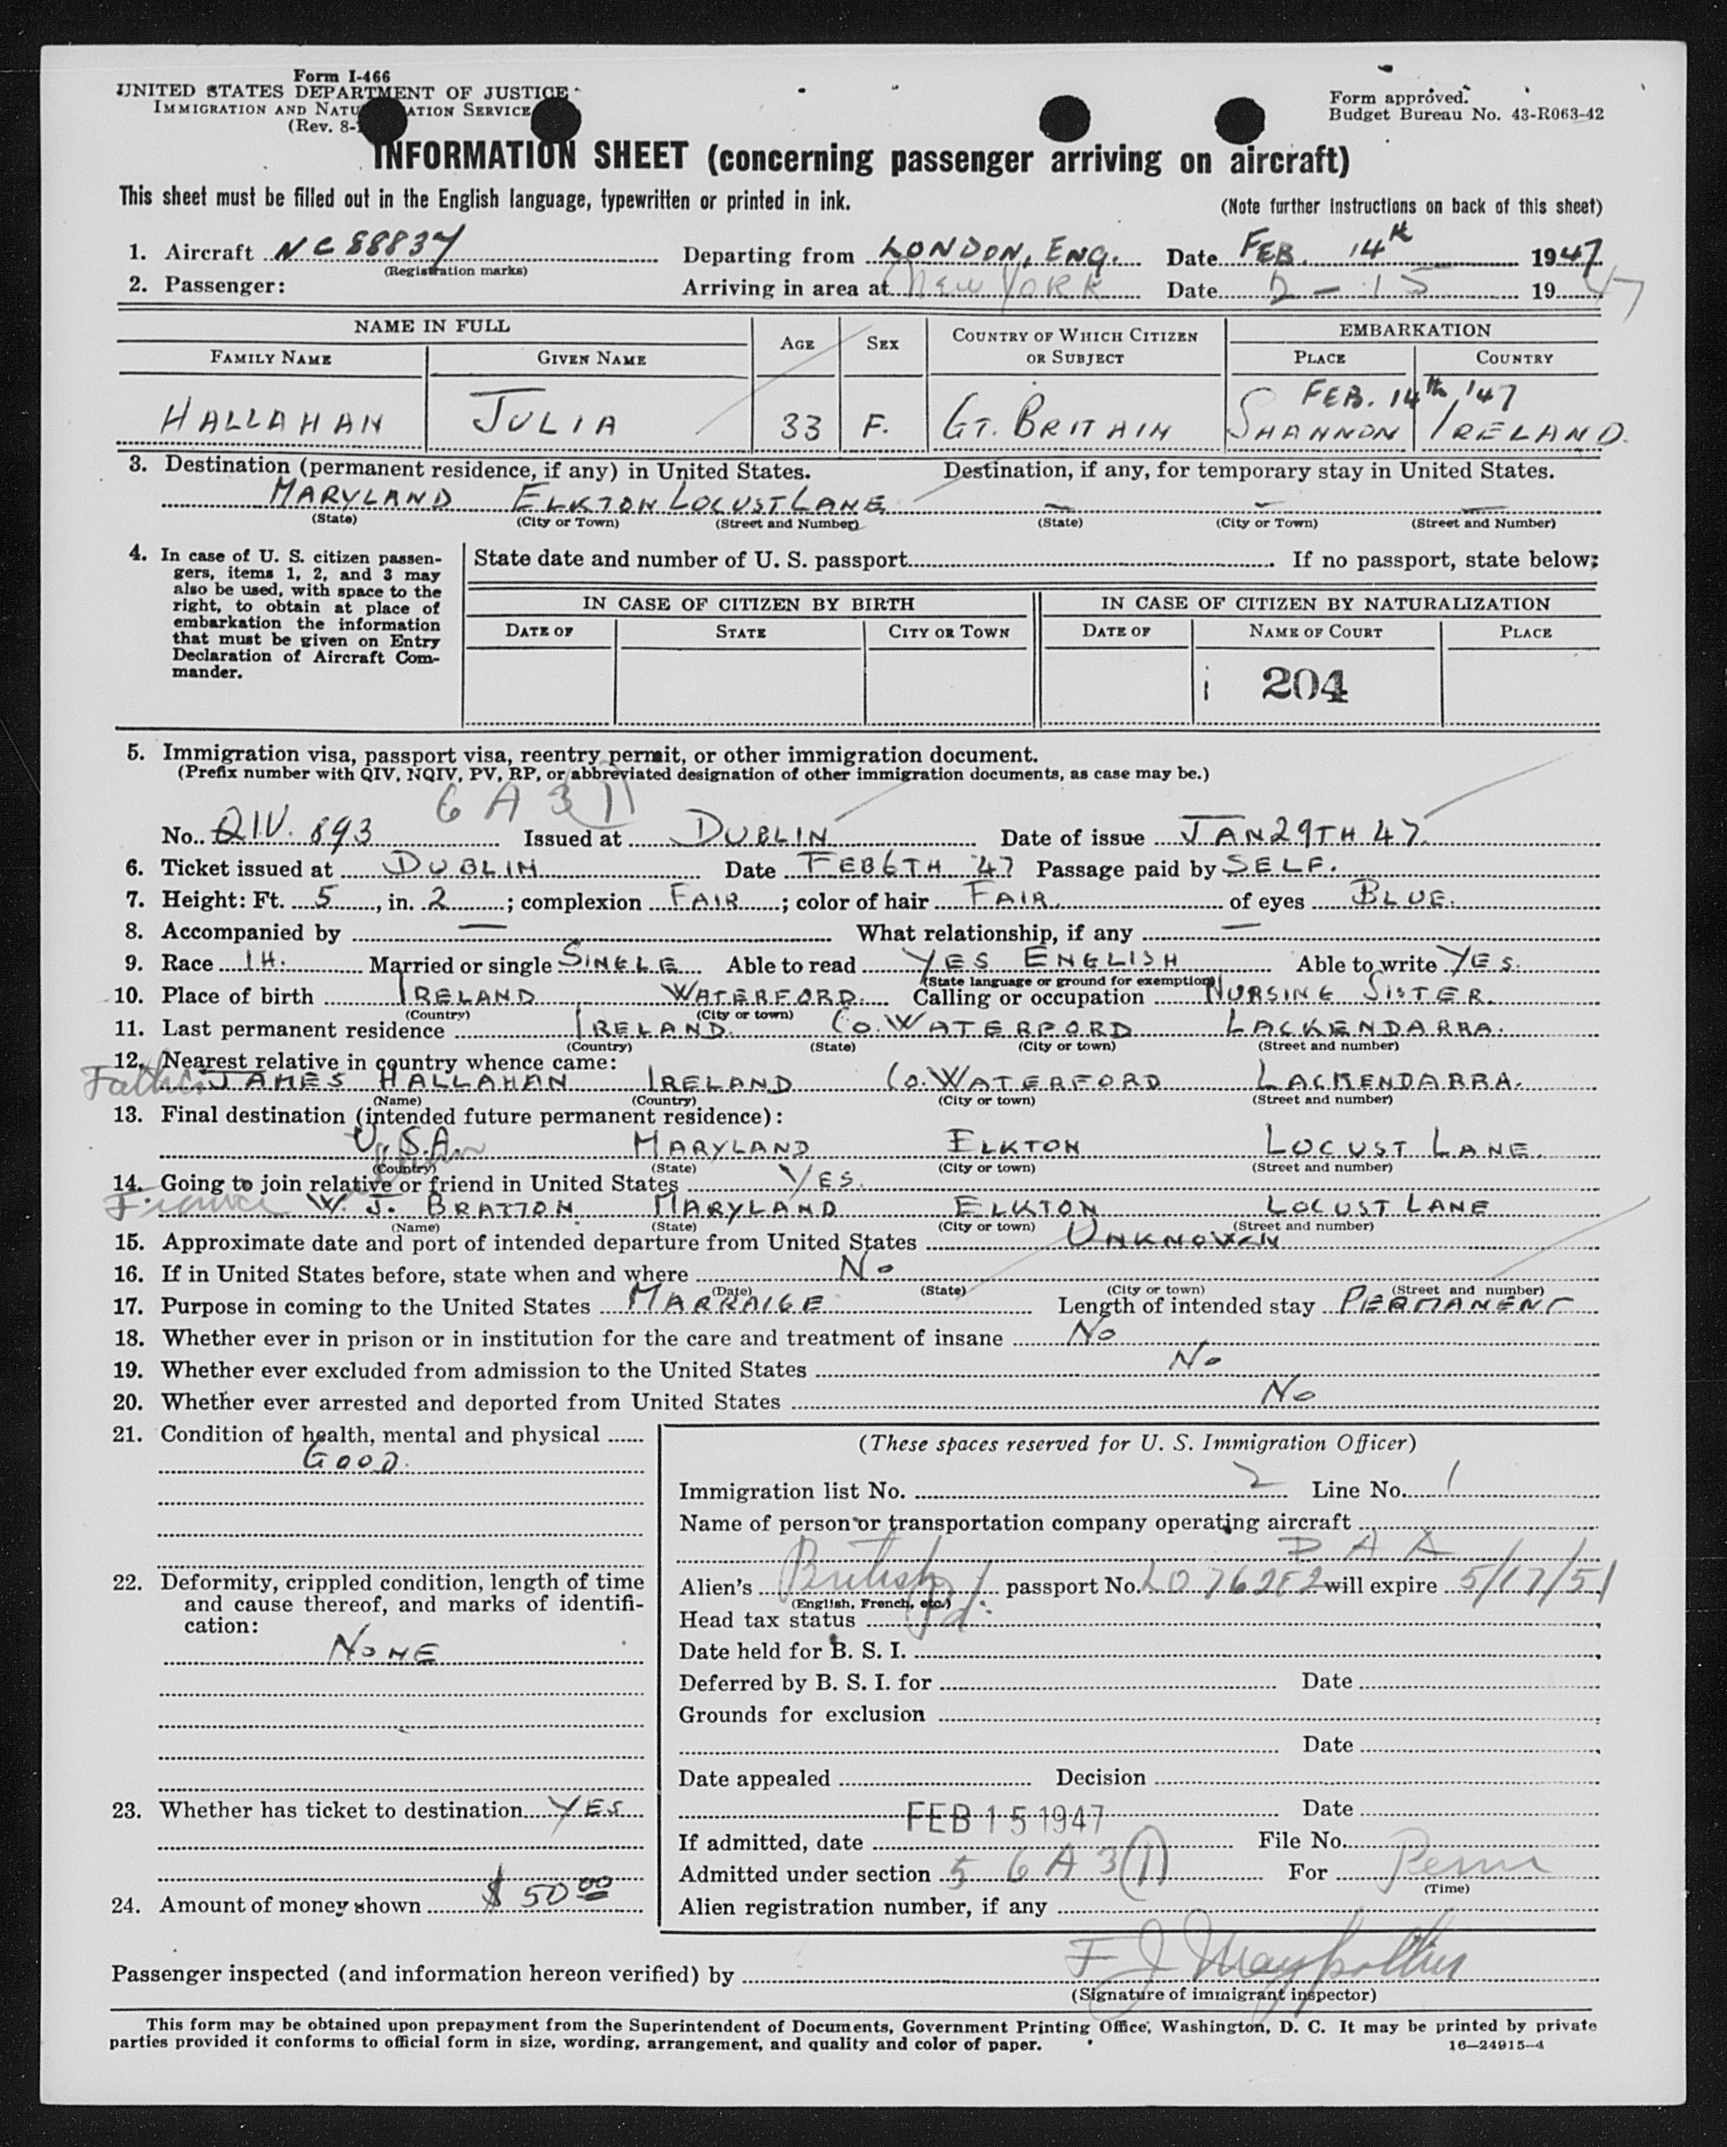 Form I-466
UNITED STATES DEPARTMENT OF JUSTICE
IMMIGRATION AND NATU ATION SERVICE
(Rev. 8-
Form approved.
Budget Bureau No. 43-R063-42
INFORMATION SHEET (concerning passenger arriving on aircraft)
This sheet must be filled out in the English language, typewritten or printed in ink.
(Note further instructions on back of this sheet)
1. Aircraft NC 88837 Departing from LONDON, ENG. Date FEB. 14th 1947
(Registration marks)
2. Passenger: Arriving in area at NEW YORK Date 2-15 1947
NAME IN FULL AGE SEX COUNTRY OF WHICH CITIZEN OR SUBJECT EMBARKATION
FAMILY NAME GIVEN NAME PLACE COUNTRY
FEB. 14th, '47
HALLAHAN JULIA 33 F. GT. BRITAIN SHANNON IRELAND.
3. Destination (permanent residence, if any) in United States. Destination, if any, for temporary stay in United States.
MARYLAND ELKTON LOCUST LANE — — —
(State) (City or Town) (Street and Number) (State) (City or Town) (Street and Number)
4. In case of U. S. citizen passengers, items 1, 2, and 3 may also be used, with space to the right, to obtain at place of embarkation the information that must be given on Entry Declaration of Aircraft Commander.
State date and number of U. S. passport If no passport, state below:
IN CASE OF CITIZEN BY BIRTH IN CASE OF CITIZEN BY NATURALIZATION
DATE OF STATE CITY OR TOWN DATE OF NAME OF COURT PLACE
204
5. Immigration visa, passport visa, reentry permit, or other immigration document.
(Prefix number with QIV, NQIV, PV, RP, or abbreviated designation of other immigration documents, as case may be.)
6 A 3 (1)
No. QIV. 893 Issued at DUBLIN Date of issue JAN 29TH 47.
6. Ticket issued at DUBLIN Date FEB 6TH '47 Passage paid by SELF.
7. Height: Ft. 5, in. 2; complexion FAIR; color of hair FAIR. of eyes BLUE.
8. Accompanied by — What relationship, if any —
9. Race IH. Married or single SINGLE Able to read YES ENGLISH Able to write YES.
(State language or ground for exemption)
10. Place of birth IRELAND WATERFORD. Calling or occupation NURSING SISTER.
(Country) (City or town)
11. Last permanent residence IRELAND. CO. WATERFORD LACKENDARRA.
(Country) (State) (City or town) (Street and number)
12. Nearest relative in country whence came:
Father JAMES HALLAHAN IRELAND CO. WATERFORD LACKENDARRA.
(Name) (Country) (City or town) (Street and number)
13. Final destination (intended future permanent residence):
U.S.A. MARYLAND ELKTON LOCUST LANE.
(Country) (State) (City or town) (Street and number)
14. Going to join relative or friend in United States YES.
Fiance W. J. BRATTON MARYLAND ELKTON LOCUST LANE
(Name) (State) (City or town) (Street and number)
15. Approximate date and port of intended departure from United States UNKNOWN
16. If in United States before, state when and where No
(Date) (State) (City or town) (Street and number)
17. Purpose in coming to the United States MARRAIGE Length of intended stay PERMANENT
18. Whether ever in prison or in institution for the care and treatment of insane No
19. Whether ever excluded from admission to the United States No
20. Whether ever arrested and deported from United States No
21. Condition of health, mental and physical
GOOD.
22. Deformity, crippled condition, length of time and cause thereof, and marks of identification:
NONE
23. Whether has ticket to destination YES
24. Amount of money shown $ 50 00
(These spaces reserved for U. S. Immigration Officer)
Immigration list No. 2 Line No. 1
Name of person or transportation company operating aircraft
P A A
Alien's British passport No. will expire 5/17/51
(English, French, etc.)
Head tax status Pd.
Date held for B. S. I.
Deferred by B. S. I. for Date
Grounds for exclusion
Date
Date appealed Decision
Date
If admitted, date FEB 15 1947 File No.
Admitted under section 5 6 A 3 (1) For Perm
(Time)
Alien registration number, if any
Passenger inspected (and information hereon verified) by F J
(Signature of immigrant inspector)
This form may be obtained upon prepayment from the Superintendent of Documents, Government Printing Office, Washington, D. C. It may be printed by private
parties provided it conforms to official form in size, wording, arrangement, and quality and color of paper.
16—24915-4